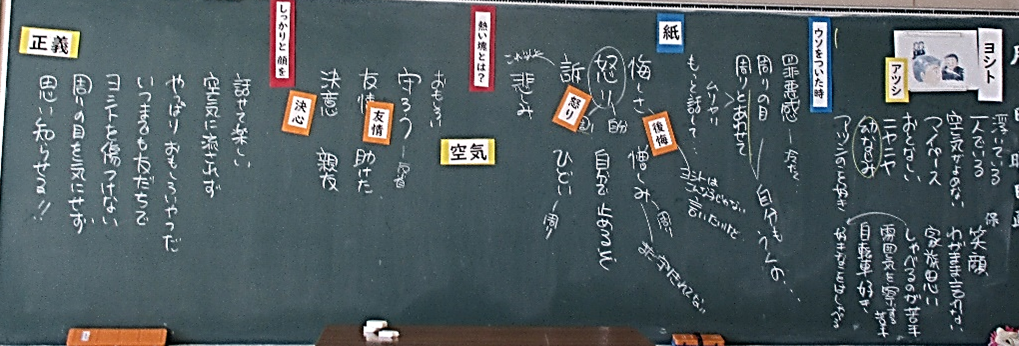 ヨシト
アツシ
浮いている
一人でいる
空気がよめない
マイペース
おとなしい
ニヤニヤ
幼なじみ
アツシのこと好き
笑顔
わがまま言わない
家族思い
しゃべるのが苦手
雰囲気を察する 苦手
自転車好き
ウソをついた時
罪悪感
周りの目
周りとあわせて
ムリヤリ
もっと話して…
自分も
紙
悔しさ
後悔
憎しみ
周り
ヨシトは
こんな子じゃない
言いたいけど
怒り
自分
怒り
自分を止めること
訴
ひどい
周り
悲しみ
熱い塊とは?
空気
おもしろい
守ろう
友情
友情
助けた
決意
親友
しっかりと 顔を
決心
話せて楽しい
空気に流されず
やっぱりおもしろいやつだ
いつまでも友だちで
ヨシトを傷つけない
周りの目を気にせず
思い知らせる!!
正義